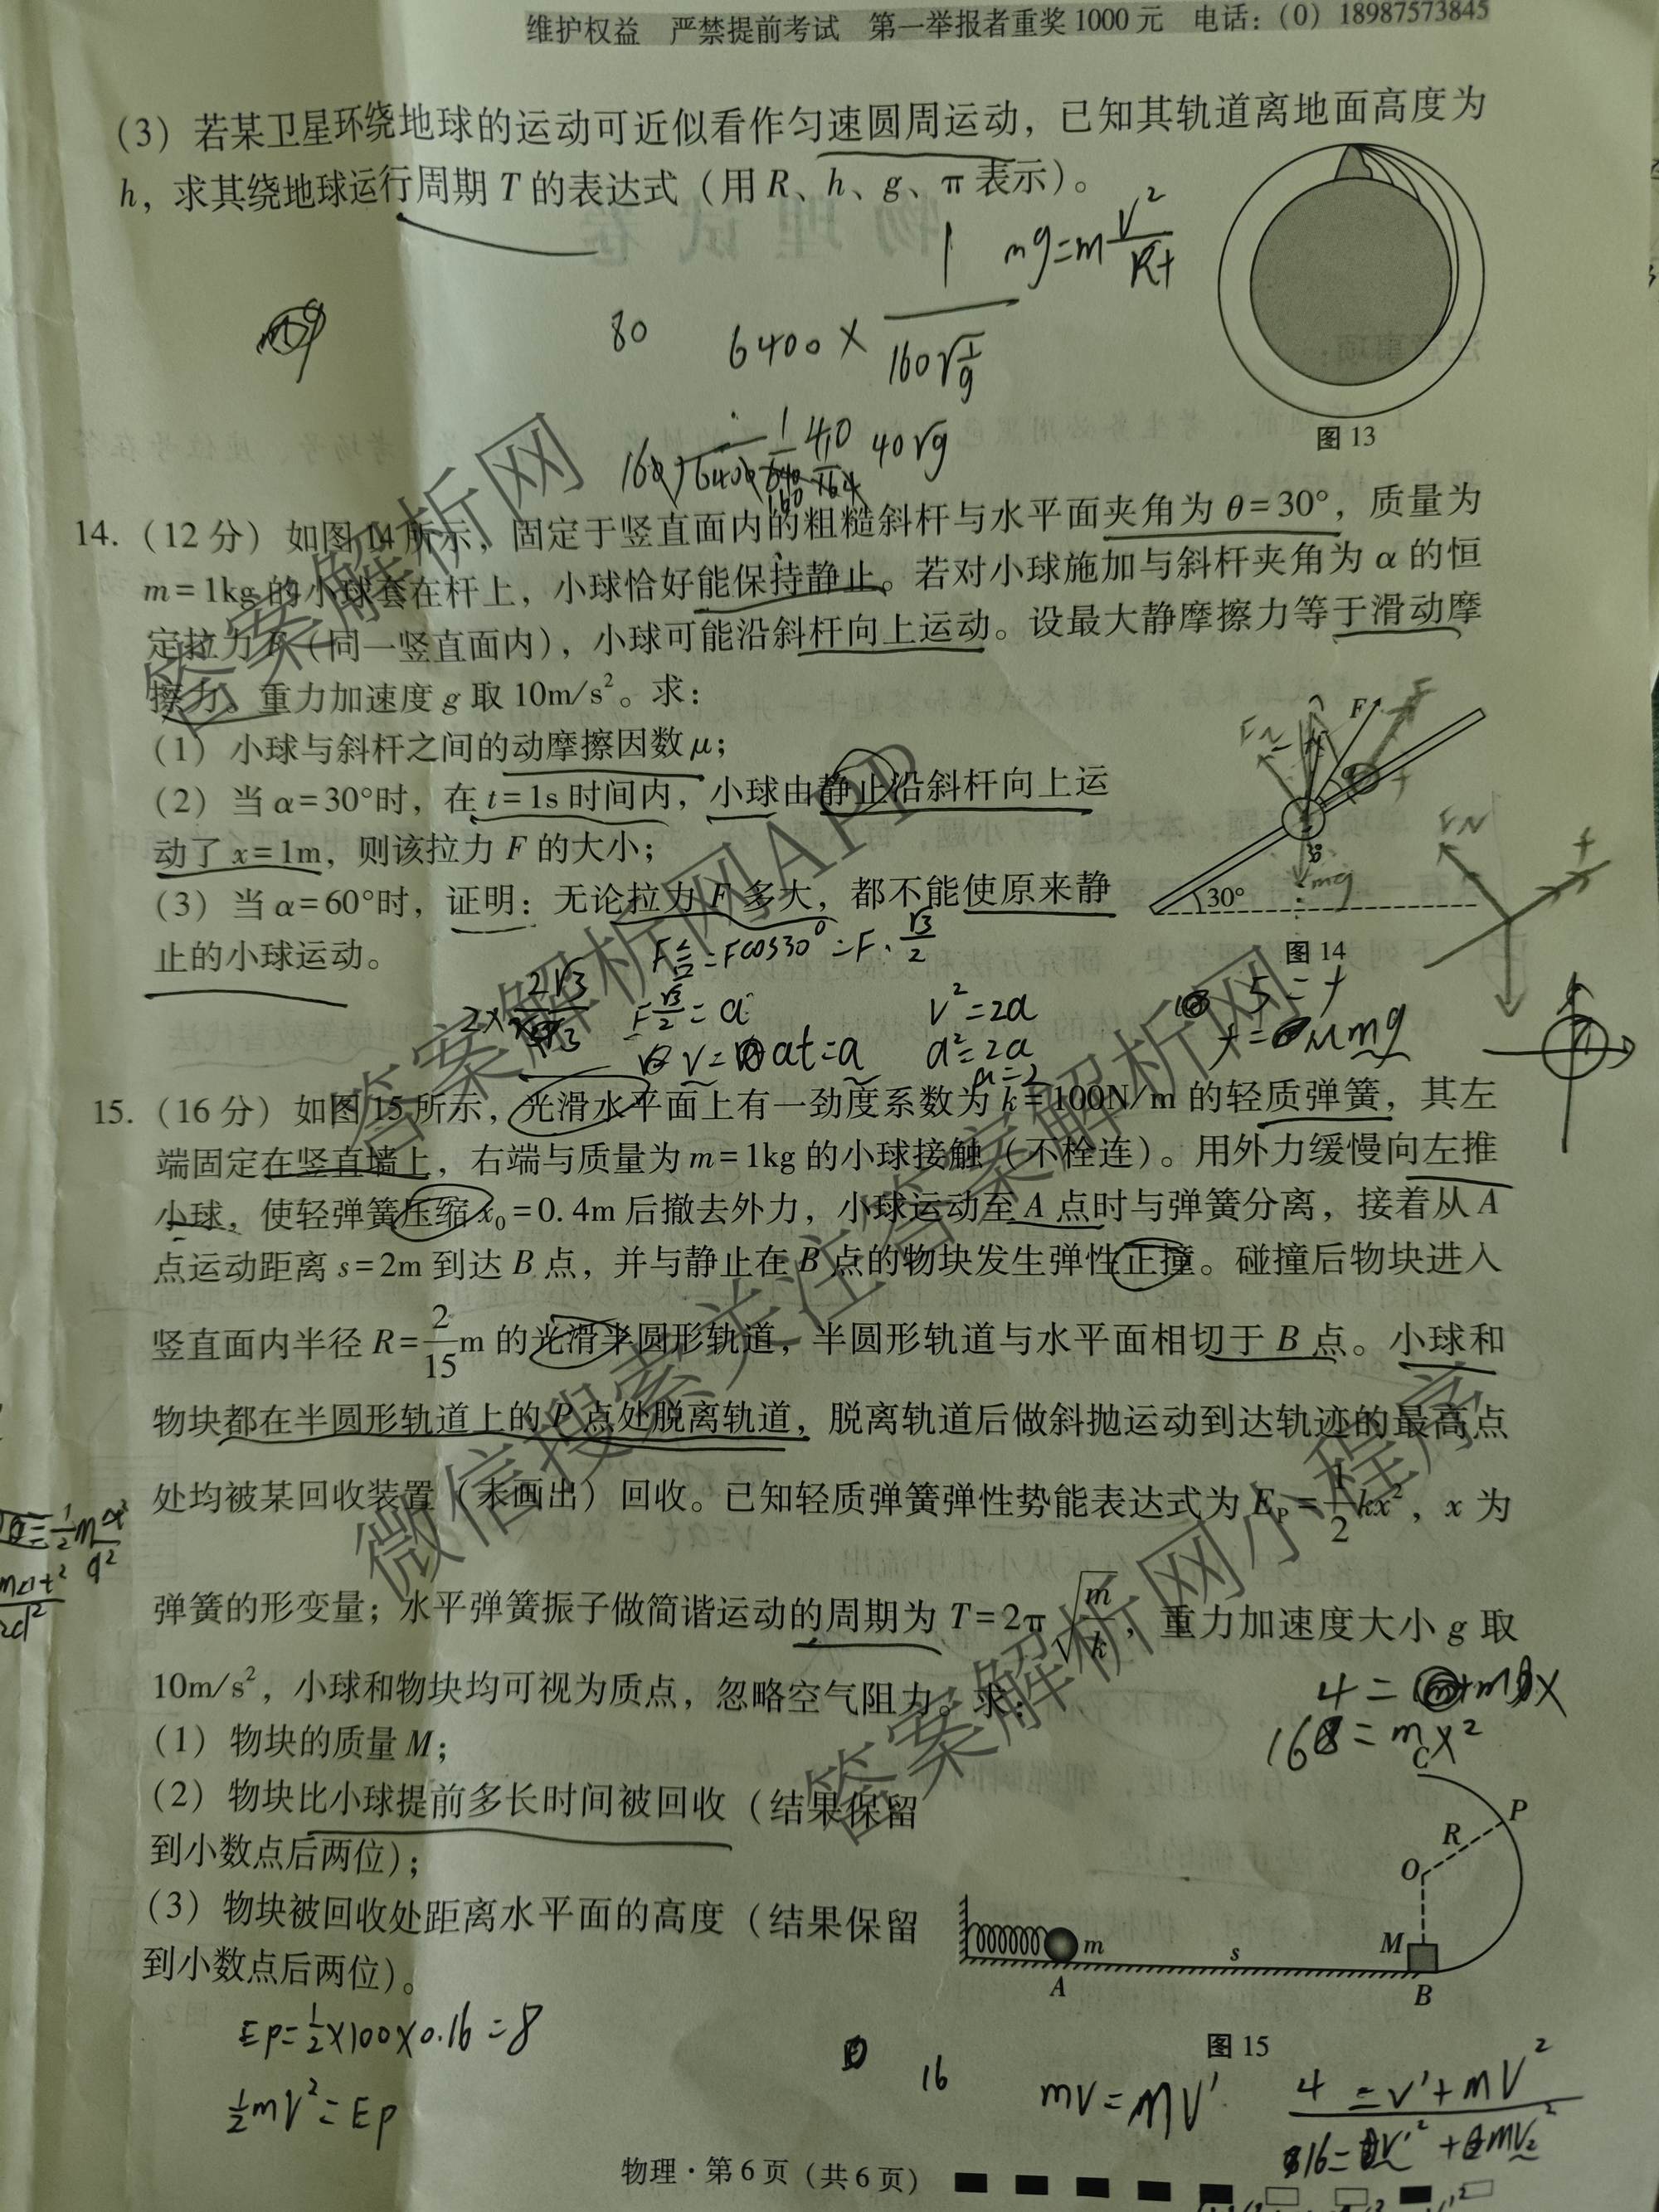 维护权益 严禁提前考试 第一举报者重奖1000元 电话：(0) 18987573845
(3) 若某卫星环绕地球的运动可近似看作匀速圆周运动，已知其轨道离地面高度为
h，求其绕地球运行周期 T 的表达式（用 R、h、g、π 表示）。
mg=m v²/R+
mg
80
6400× 1/160√(1/g)
40√g
图 13
14.（12 分）如图 14 所示，固定于竖直面内的粗糙斜杆与水平面夹角为 θ=30°，质量为
m=1kg 的小球套在杆上，小球恰好能保持静止。若对小球施加与斜杆夹角为 α 的恒
定拉力 F（同一竖直面内），小球可能沿斜杆向上运动。设最大静摩擦力等于滑动摩
擦力，重力加速度 g 取 10m/s²。求：
(1) 小球与斜杆之间的动摩擦因数 μ；
(2) 当 α=30°时，在 t=1s 时间内，小球由静止沿斜杆向上运
动了 x=1m，则该拉力 F 的大小；
(3) 当 α=60°时，证明：无论拉力 F 多大，都不能使原来静
止的小球运动。
F
FN
mg
30°
FN
f
图 14
F合=Fcos30°=F·√3/2
F√3/2=a
v=at=a
v²=2a
a²=2a
a=2
5=f
f=μmg
15.（16 分）如图 15 所示，光滑水平面上有一劲度系数为 k=100N/m 的轻质弹簧，其左
端固定在竖直墙上，右端与质量为 m=1kg 的小球接触（不栓连）。用外力缓慢向左推
小球，使轻弹簧压缩 x₀=0.4m 后撤去外力，小球运动至 A 点时与弹簧分离，接着从 A
点运动距离 s=2m 到达 B 点，并与静止在 B 点的物块发生弹性正撞。碰撞后物块进入
竖直面内半径 R=2/15m 的光滑半圆形轨道，半圆形轨道与水平面相切于 B 点。小球和
物块都在半圆形轨道上的 P 点处脱离轨道，脱离轨道后做斜抛运动到达轨迹的最高点
处均被某回收装置（未画出）回收。已知轻质弹簧弹性势能表达式为 Eₚ=1/2kx²，x 为
弹簧的形变量；水平弹簧振子做简谐运动的周期为 T=2π√(m/k)，重力加速度大小 g 取
10m/s²，小球和物块均可视为质点，忽略空气阻力。求：
(1) 物块的质量 M；
(2) 物块比小球提前多长时间被回收（结果保留
到小数点后两位）；
(3) 物块被回收处距离水平面的高度（结果保留
到小数点后两位）。
C
P
R
O
M
m
s
A
B
图 15
Ep=1/2×100×0.16=8
1/2mV²=Ep
16
mv=MV'
物理·第 6 页（共 6 页）
答案解析网
答案解析网APP
微信搜索关注答案解析网
答案解析网小程序